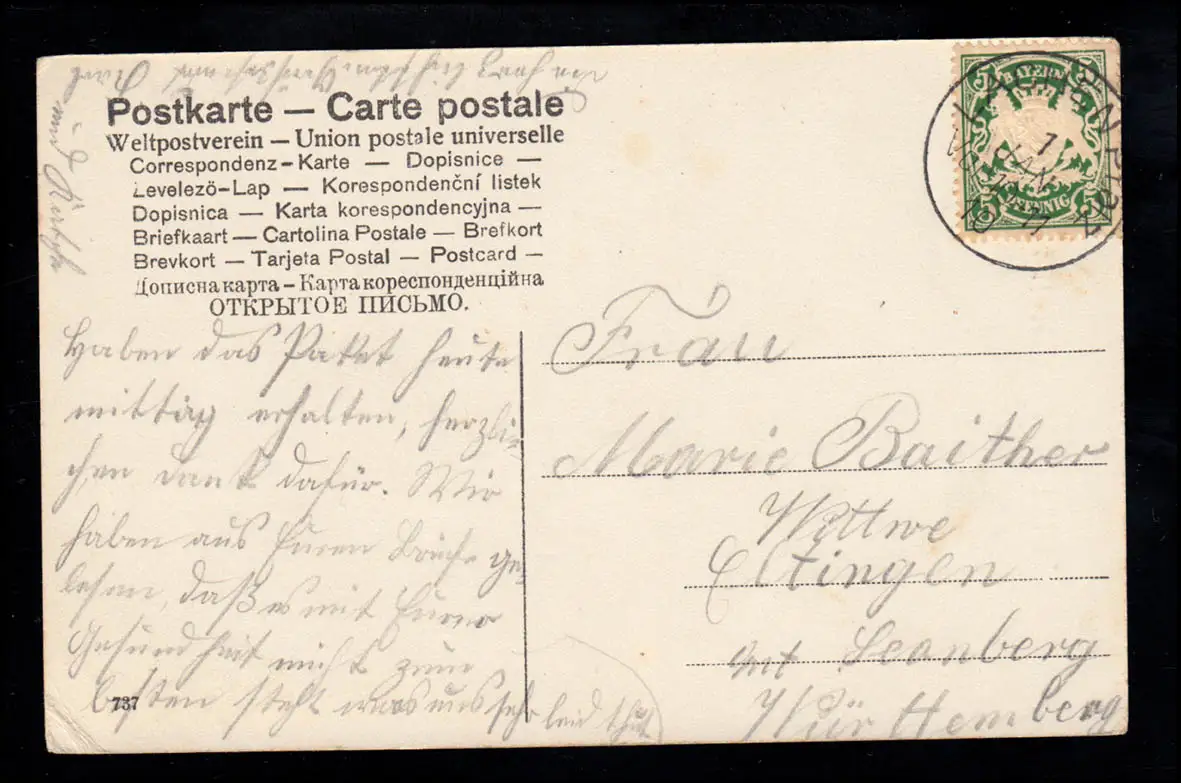 Postkarte — Carte postale
Weltpostverein — Union postale universelle
Correspondenz-Karte — Dopisnice —
Levelezö-Lap — Korespondenční listek
Dopisnica — Karta korespondencyjna —
Briefkaart — Cartolina Postale — Brefkort
Brevkort — Tarjeta Postal — Postcard —
Дописна карта – Карта кореспонденційна
ОТКРЫТОЕ ПИСЬМО.
Haben das Paket heute
mittag erhalten, herzli-
chen Dank dafür. Wir
haben aus Euren Briefe ge-
lesen, daß es mit Eurer
Gesundheit nicht zum
besten steht was uns sehr leid thut
737
BAYERN
5 5
PFENNIG
1
JAN
11
Frau
Marie Baither
Wittwe
Eltingen
Amt Leonberg
Württemberg